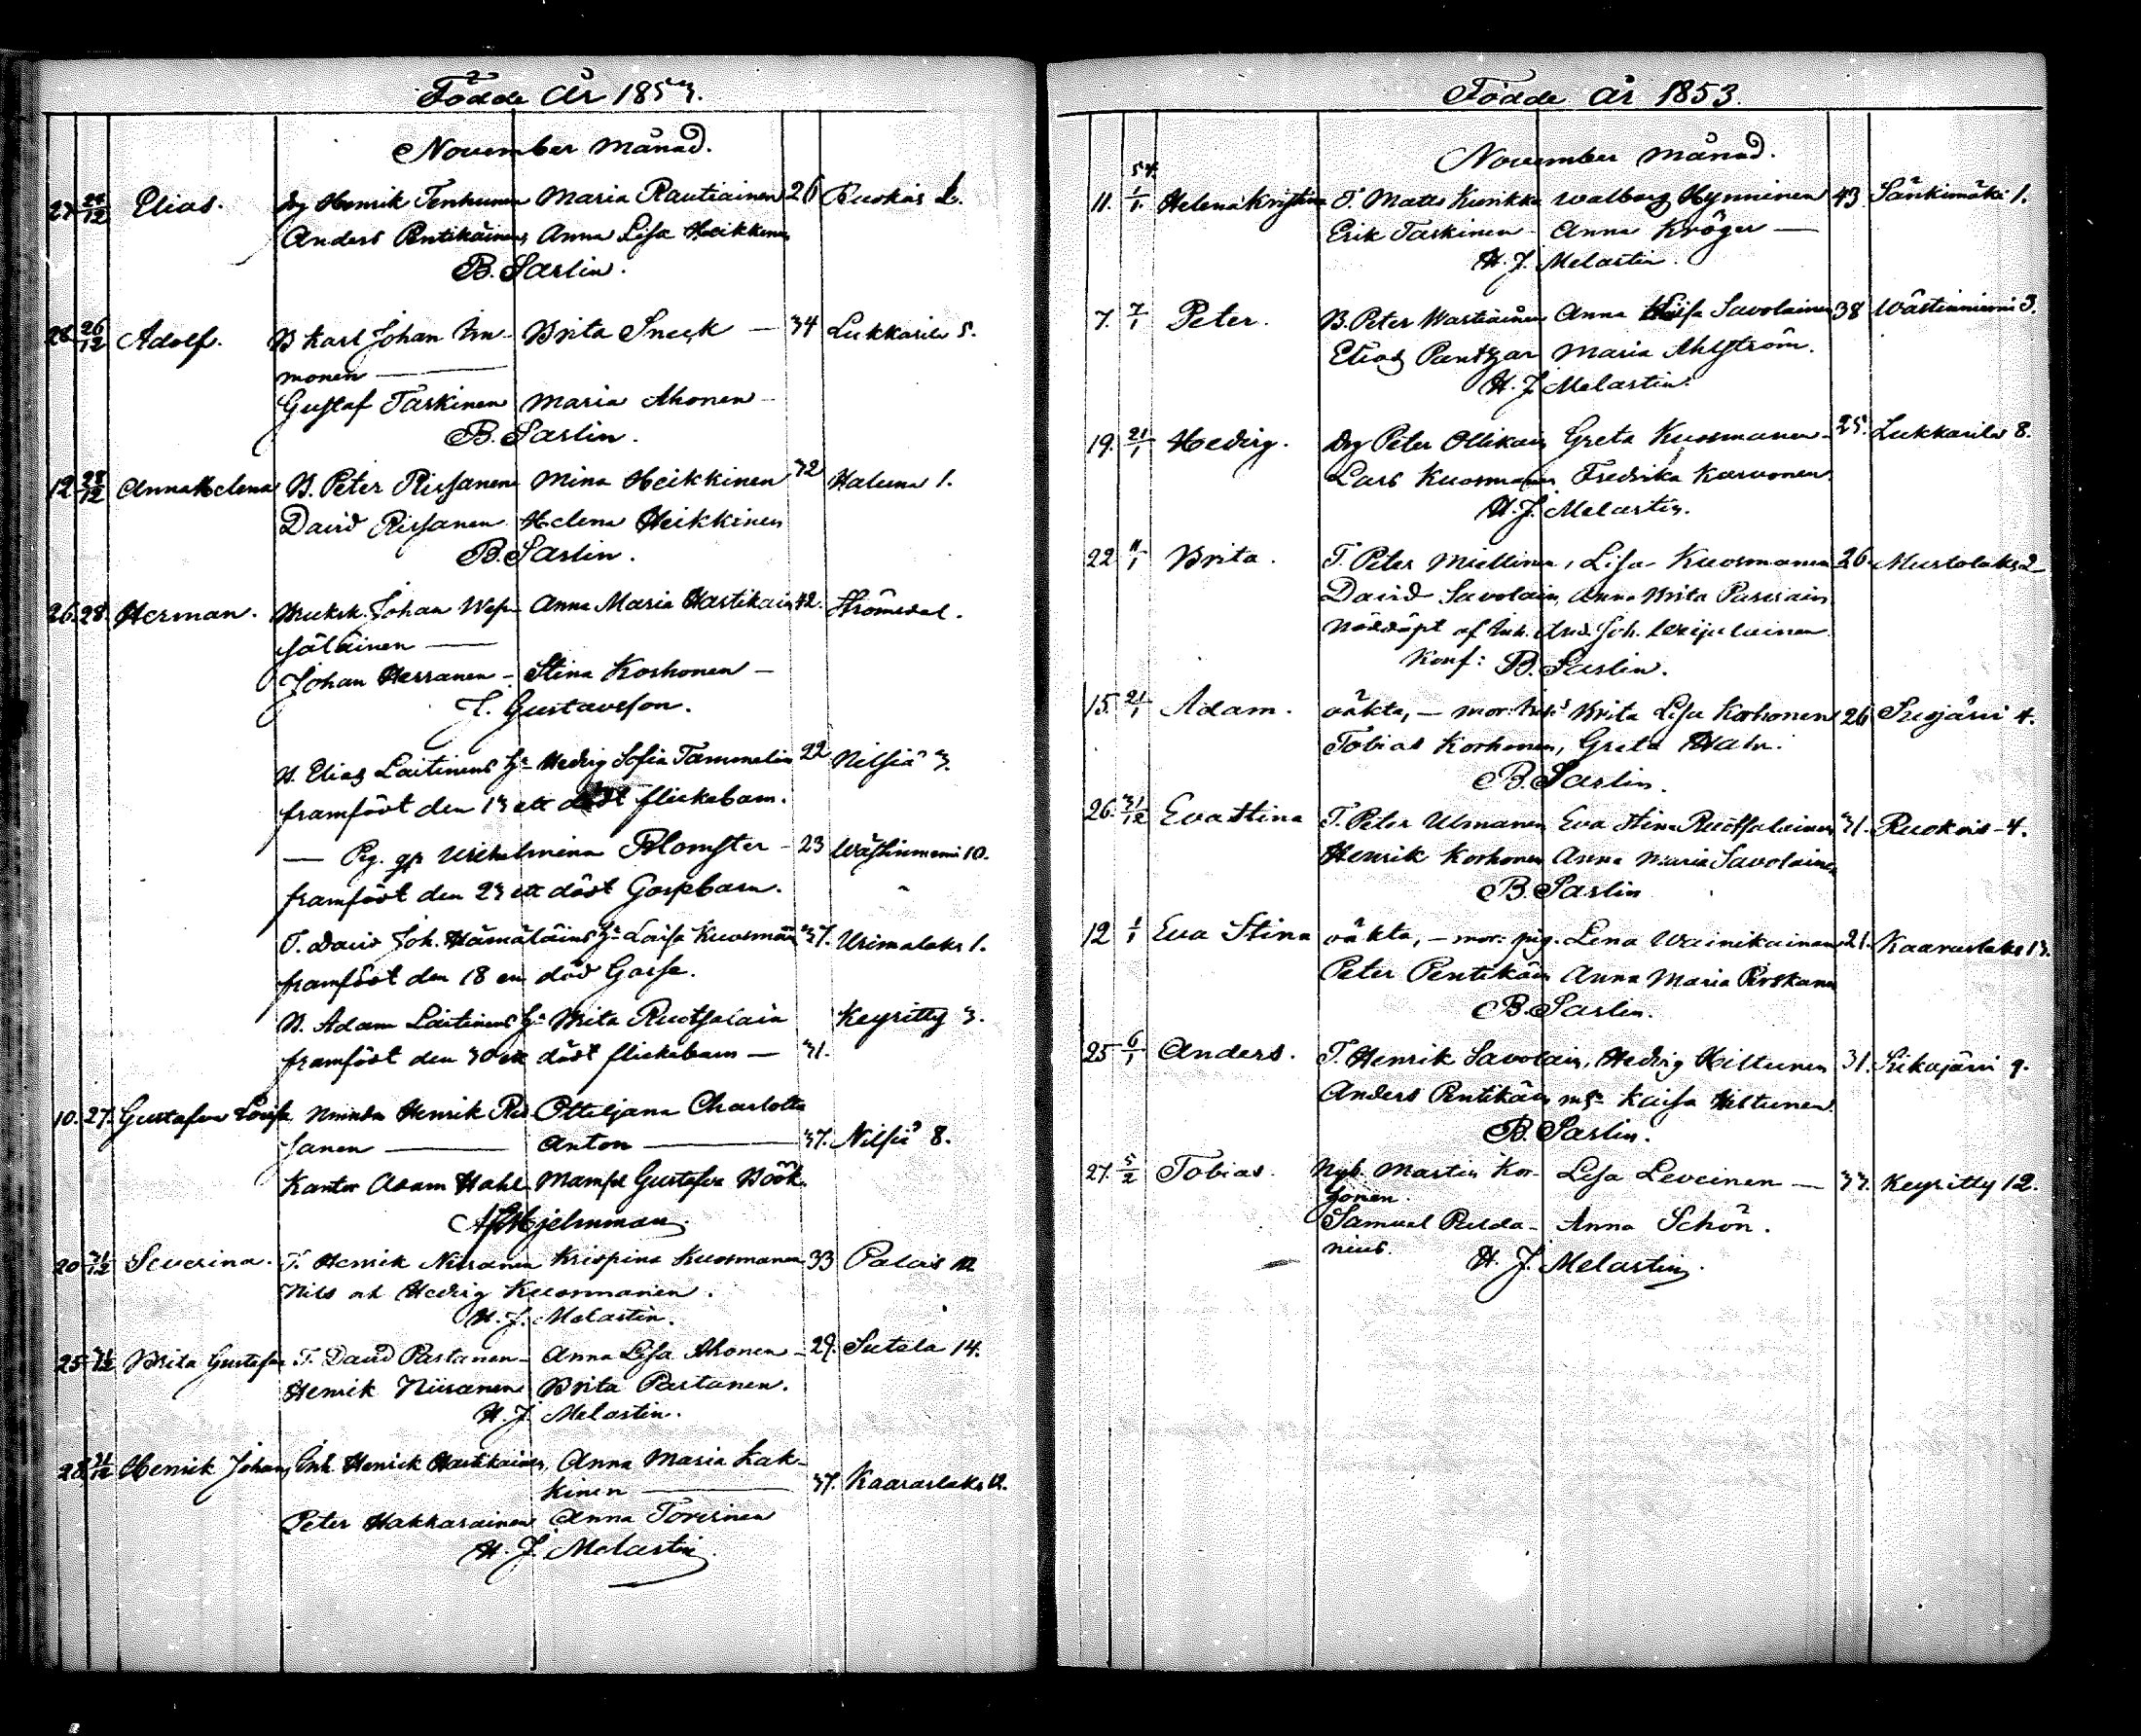 Födde År 1853.
November månad.
27 24/12 Elias. Dg Henrik Tenhunen Maria Rautiainen 26 Ruokois 2.
Anders Pentikäinen, Anna Lisa Heikkinen
B. Sarlin.
28 26/12 Adolf. B Karl Johan Im- Brita Sneck — 34 Lukkarila 5.
monen —
Gustaf Taskinen Maria Ahonen —
B. Sarlin.
12 28/12 Anna Helena B. Peter Rissanen Mina Heikkinen 32 Haluna 1.
David Rissanen Helena Heikkinen
B. Sarlin.
26. 28. Herman. Bruksk. Johan Wep- Anna Maria Hartikain 42. Strömsdal.
säläinen —
Johan Herranen - Stina Korhonen —
J. Gustavson.
B. Elias Laitinens h:u Hedvig Sofia Tammelin 22 Nilsiä 3.
framfödt den 13 ett dödt flickebarn.
— Pig. Wilhelmina Blomster - 23 Wästinniemi 10.
framfödt den 23 ett dödt Gossebarn.
T. David Joh. Hämäläins h:u Lovisa Kuosman 37. Urimolaks 1.
framfödt den 18 en död Gosse.
B. Adam Laitinens h:u Brita Ruotsalain Keyritty 3.
framfödt den 30 ett dödt flickebarn — 31.
10. 27. Gustafva Lovisa Nmndm Henrik Ris- Otteljana Charlotta
sanen — Anton — 37. Nilsiä 8.
Kantor Adam Hahl Mamsel Gustafva Böök.
Hjelmman.
20 31/12 Severina. T. Henrik Niiranen Krispina Kuosmanen 33 Palois 12.
Nils och Hedvig Kuosmanen.
H. J. Melartin.
25 31/12 Brita Gustafva T. David Partanen - Anna Lisa Ahonen - 29. Sutela 14.
Henrik Niiranen Brita Partanen.
H. J. Melartin.
28 31/12 Henrik Johan Inh. Henrik Hartikainen, Anna Maria Kak-
kinen — 37. Kaaraslaks 12.
Peter Hakkarainen Anna Tovisinen
H. J. Melartin.
Födde År 1853.
November månad.
54.
11. 1/1. Helena Kristina T. Matts Kurikka Walborg Hynninen 43 Sänkimäki 1.
Erik Taskinen - Anna Kröger —
H. J. Melartin.
7. 7/1 Peter. B. Peter Wartiainen Anna Lisa Savolainen 38 Wästinniemi 3.
Elias Pantzar Maria Ahlström.
H. J. Melartin.
19. 21/1 Hedvig. Dg Peter Ollikain Greta Kuosmanen - 25. Lukkarila 8.
Lars Kuosmanen Fredrika Karvonen.
H. J. Melartin.
22 11/1 Brita. T. Peter Miettinen, Lisa Kuosmanen 26. Murtolaks 2
David Savolain, Anna Brita Parviain
Nöddöpt af Inh. And. Joh. Weijalainen.
Konf: B. Sarlin.
15. 21/1 Adam. oäkta, — mor: Inh:s Brita Lisa Korhonen 26 Suojärvi 4.
Tobias Korhonen, Greta Hahr.
B. Sarlin.
26. 31/12 Eva Stina T. Peter Ulmanen Eva Stina Ruotsalainen 31. Ruokois - 4.
Henrik Korhonen Anna Maria Savolainen
B. Sarlin
12 1/1 Eva Stina oäkta, — mor: pig. Lena Wainikainen 21. Kaaraslaks 13.
Peter Pentikäin Anna Maria Pirskanen
B. Sarlin.
25 6/1 Anders. T. Henrik Savolain, Hedvig Hiltunen 31. Sikajärvi 9.
Anders Pentikäin Kaisa Hiltunen.
B. Sarlin.
27. 5/2 Tobias. Nyb. Martin Kor- Lisa Leveinen — 33. Keyritty 12.
honen.
Samuel Pulda- Anna Schön.
nius.
H. J. Melartin.